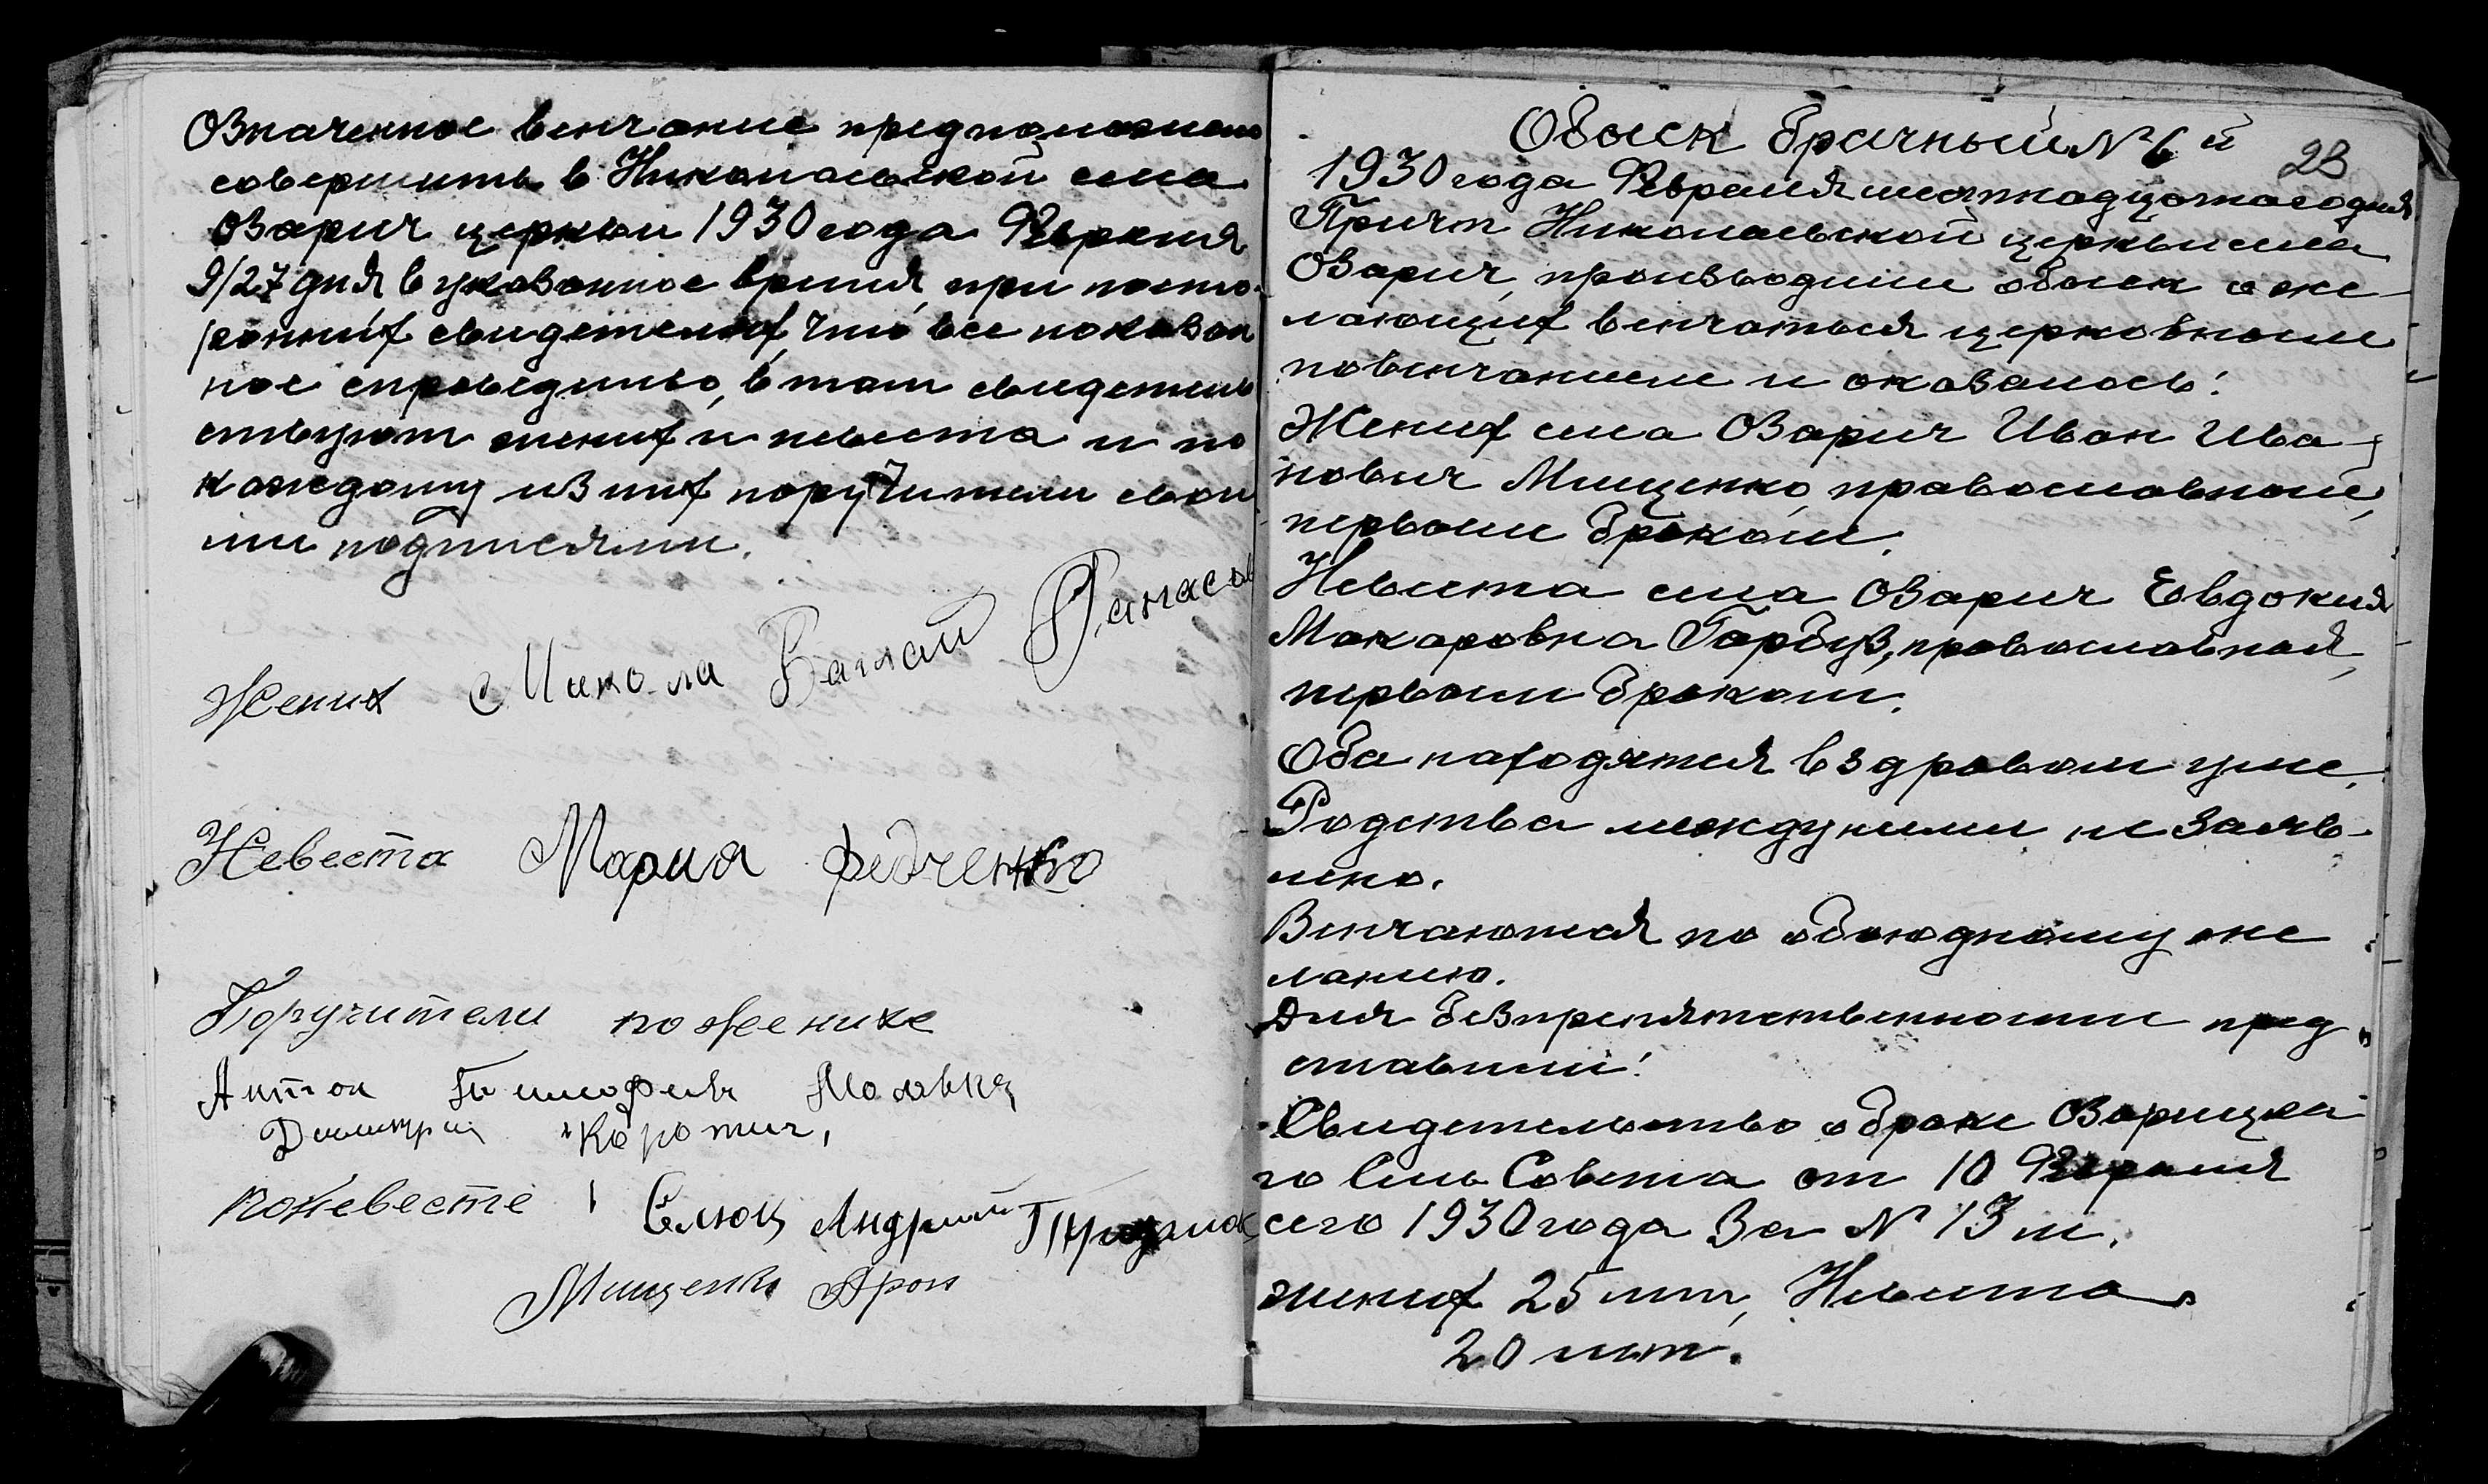 Означенное венчание предположено
совершить в Николаевской села
Озарич церкви 1930 года Февраля
9/27 дня в указанное время, при посто-
ронних свидетелях, что все показан
ное справедливо, в том свидетель
ствуют жених и невеста и по
каждому из них поручители свои
ми подписями.
Жених Микола Баглай
Невеста Мария Федченко
Поручители по женихе
Антон Маловка
Димитрий Коротич,
по невесте Селюк Андрий
Мищенко Арон
Обыск брачный № 6й
23
1930 года Февраля шестнадцатого дня
Причт Николаевской церкви села
Озарич, производили обыск о же-
лающих венчаться церковным
повенчанием и оказалось:
Жених села Озарич Иван Ива-
нович Мищенко, православный,
первым браком.
Невеста села Озарич Евдокия
Макаровна Гарбуз, православная,
первым браком.
Оба находятся в здравом уме.
Родства между ними не заяв-
лено.
Венчаются по обоюдному же
ланию.
Для безпрепятственности пред
ставили:
Свидетельство о браке Озарицка-
го Сель Совета от 10 Февраля
сего 1930 года За № 13 м.
жених 25 лет, Невеста
20 лет.